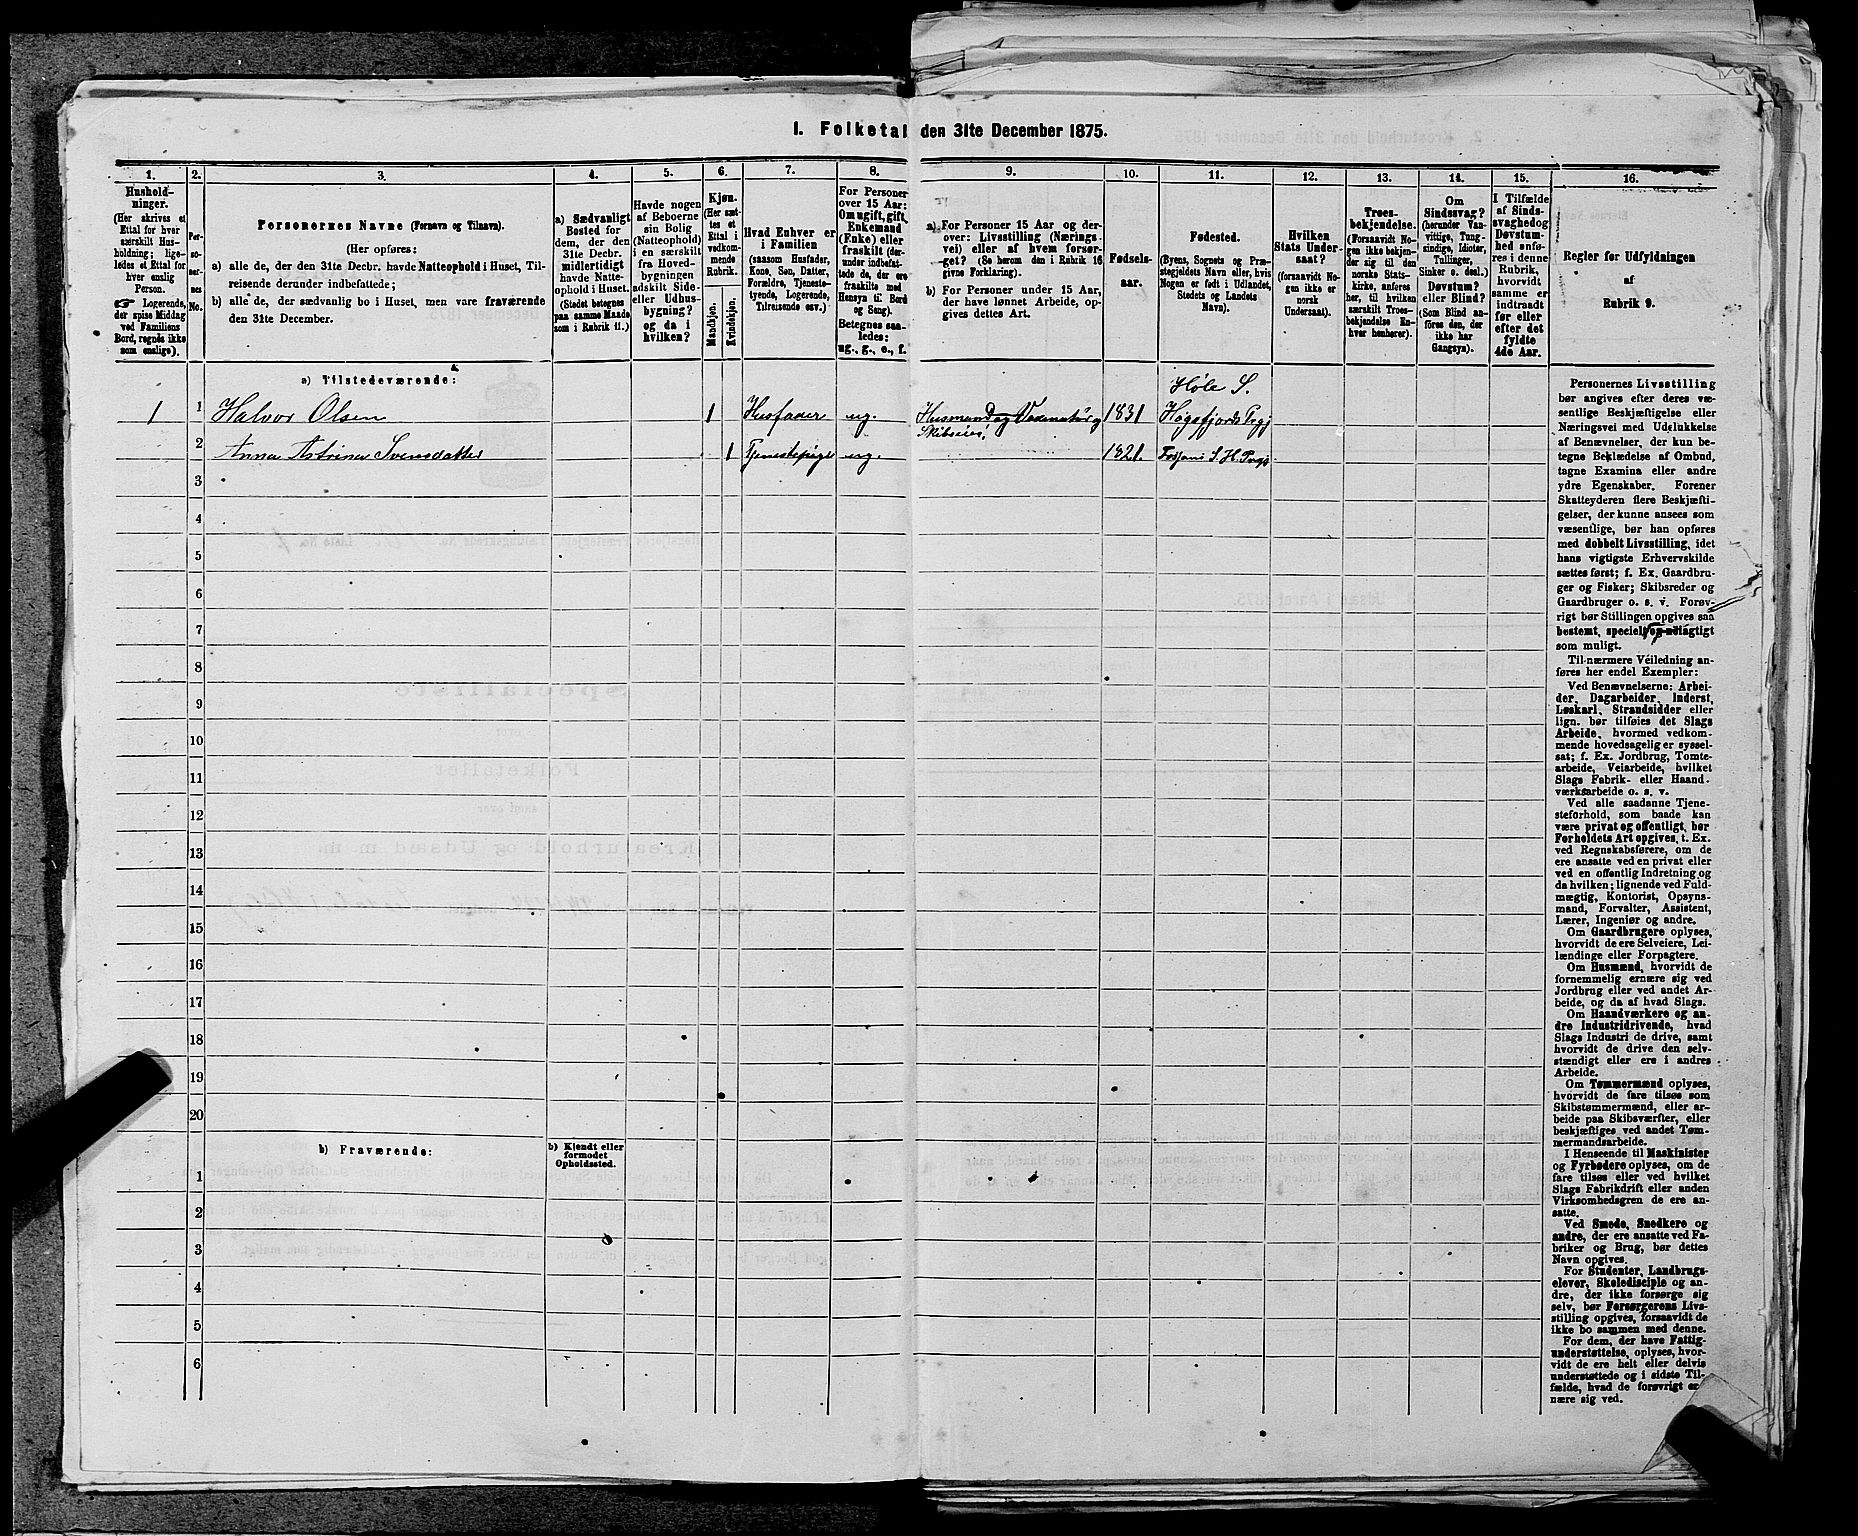 1. Folketal den 31te December 1875.
1.
Hushold-
ninger.
(Her skrives et
Ettal for hver
særskilt Hus-
holdning; lige-
ledes et Ettal for
hver enslig
Person.
☞ Logerende,
der spise Middag
ved Familiens
Bord, regnes ikke
som enslige).
2.
Per-
so-
ner-
nes
No.
3.
Personernes Navne (Fornavn og Tilnavn).
(Her opføres:
a) alle de, der den 31te Decbr. havde Natteophold i Huset, Til-
reisende derunder indbefattede;
b) alle de, der sædvanlig bo i Huset, men vare fraværende
den 31te December.
4.
a) Sædvanligt
Bosted for
dem, der den
31te Decbr.
midlertidigt
havde Natte-
ophold i Huset.
(Stedet betegnes
paa samme Maade
som i Rubrik 11.)
5.
Havde nogen
af Beboerne
sin Bolig
(Natteophold)
i en særskilt
fra Hoved-
bygningen
adskilt Side-
eller Udhus-
bygning?
og da i
hvilken?
6.
Kjøn.
(Her sæt-
tes et
Ettal i
vedkom-
mende
Rubrik.
Mandkjøn.
Kvindekjøn.
7.
Hvad Enhver er
i Familien
(saasom Husfader,
Kone, Søn, Datter,
Forældre, Tjeneste-
tyende, Logerende,
Tilreisende osv.)
8.
For Personer
over 15 Aar:
Om ugift, gift,
Enkemand
(Enke) eller
fraskilt (der-
under indbefat-
tede de, der ere
fraskilte med
Hensyn til Bord
og Seng).
Betegnes saa-
ledes:
ug., g., e., f.
9.
a) For Personer 15 Aar og der-
over: Livsstilling (Nærings-
vei) eller af hvem forsør-
get? (Se herom den i Rubrik 16
givne Forklaring).
b) For Personer under 15 Aar,
der have lønnet Arbeide, op-
gives dettes Art.
10.
Fødsels-
aar.
11.
Fødested.
(Byens, Sognets og Præ-
stegjeldets Navn eller, hvis
Nogen er født i Udlandet,
Stedets og Landets
Navn).
12.
Hvilken
Stats Under-
saat?
(forsaavidt No-
gen ikke er
norsk
Undersaat).
13.
Troes-
bekjendelse.
(Forsaavidt No-
gen ikke bekjen-
der sig til den
norske Stats-
kirke, anføres
her, til hvilken
særskilt Troes-
bekjendelse En-
hver henhører).
14.
Om
Sindssvag?
(herunder Van-
vittige, Tung-
sindige, Idioter,
Tullinger,
Sinker o. desl.)
Døvstum?
eller Blind?
(Som Blind an-
føres den, der
ikke har
Gangsyn).
15.
I Tilfælde
af Sinds-
svaghed og
Døvstum-
hed anfø-
res i denne
Rubrik,
hvorvidt
samme er
indtraadt
før eller
efter det
fyldte
4de Aar.
16.
Regler for Udfyldningen
af
Rubrik 9.
a) Tilstedeværende:
1 1 Halvor Olsen 1 Husfader ug. Husmand og 1831 Høle S. Høgsfjords
Skibseier
2 Anna Astrina Svensdatter 1 Tjenestepige ug. 1821.
3
4
5
6
7
8
9
10
11
12
13
14
15
16
17
18
19
20
b) Fraværende:
b) Kjendt eller
formodet
Opholdssted.
1
2
3
4
5
6
Personernes Livsstilling
bør angives efter deres væ-
sentlige Beskjæftigelse eller
Næringsvei med Udelukkelse
af Benævnelser, der kun be-
tegne Beklædelse af Ombud,
tagne Examina eller andre
ydre Egenskaber. Forener
Skatteyderen flere Beskjæfti-
gelser, der kunne ansees som
væsentlige, bør han opføres
med dobbelt Livsstilling, idet
hans vigtigste Erhvervskilde
sættes først; f. Ex. Gaardbru-
ger og Fisker; Skibsreder og
Gaardbruger o. s. v. Forøv-
rigt bør Stillingen opgives saa
bestemt, specielt og nøiagtigt
som muligt.
Til nærmere Veiledning an-
føres her endel Exempler:
Ved Benævnelserne: Arbei-
der, Dagarbeider, Inderst,
Løskarl, Strandsidder eller
lign. bør tilføies det Slags
Arbeide, hvormed vedkom-
mende hovedsagelig er syssel-
sat; f. Ex. Jordbrug, Tomte-
arbeide, Veiarbeide, hvilket
Slags Fabrik- eller Haand-
værksarbeide o. s. v.
Ved alle saadanne Tjene-
steforhold, som baade kan
være privat og offentligt, bør
Forholdets Art opgives, t. Ex.
ved Regnskabsførere, om de
ere ansatte ved en privat eller
ved en offentlig Indretning og
da hvilken; lignende ved Fuld-
mægtig, Kontorist, Opsyns-
mand, Forvalter, Assistent,
Lærer, Ingeniør og andre.
Om Gaardbrugere oplyses,
hvorvidt de ere Selveiere, Lei-
lændinge eller Forpagtere.
Om Husmænd, hvorvidt de
fornemmelig ernære sig ved
Jordbrug eller ved andet Ar-
beide, og da af hvad Slags.
Om Haandværkere og an-
dre Industridrivende, hvad
Slags Industri de drive, samt
hvorvidt de drive den selv-
stændigt eller ere i andres
Arbeide.
Om Tømmermænd oplyses,
hvorvidt de fare tilsøs som
Skibstømmermænd, eller ar-
beide paa Skibsværfter, eller
beskjæftiges ved andet Tøm-
mermandsarbeide.
I Henseende til Maskinister
og Fyrbødere oplyses, om de
fare tilsøs eller ved hvilket
Slags Fabrikdrift eller anden
Virksomhedsgren de ere an-
satte.
Ved Smede, Snedkere og
andre, der ere ansatte ved Fa-
briker og Brug, bør dettes
Navn opgives.
For Studenter, Landbrugs-
elever, Skoledisciple og an-
dre, der ikke forsørge sig
selv, bør Forsørgerens Livs-
stilling opgives, forsaavidt de
ikke bo sammen med denne.
For dem, der have Fattig-
understøttelse, oplyses, hvor-
vidt de ere helt eller delvis
understøttede og i sidste Til-
fælde, hvad de forøvrigt er-
nære sig ved.